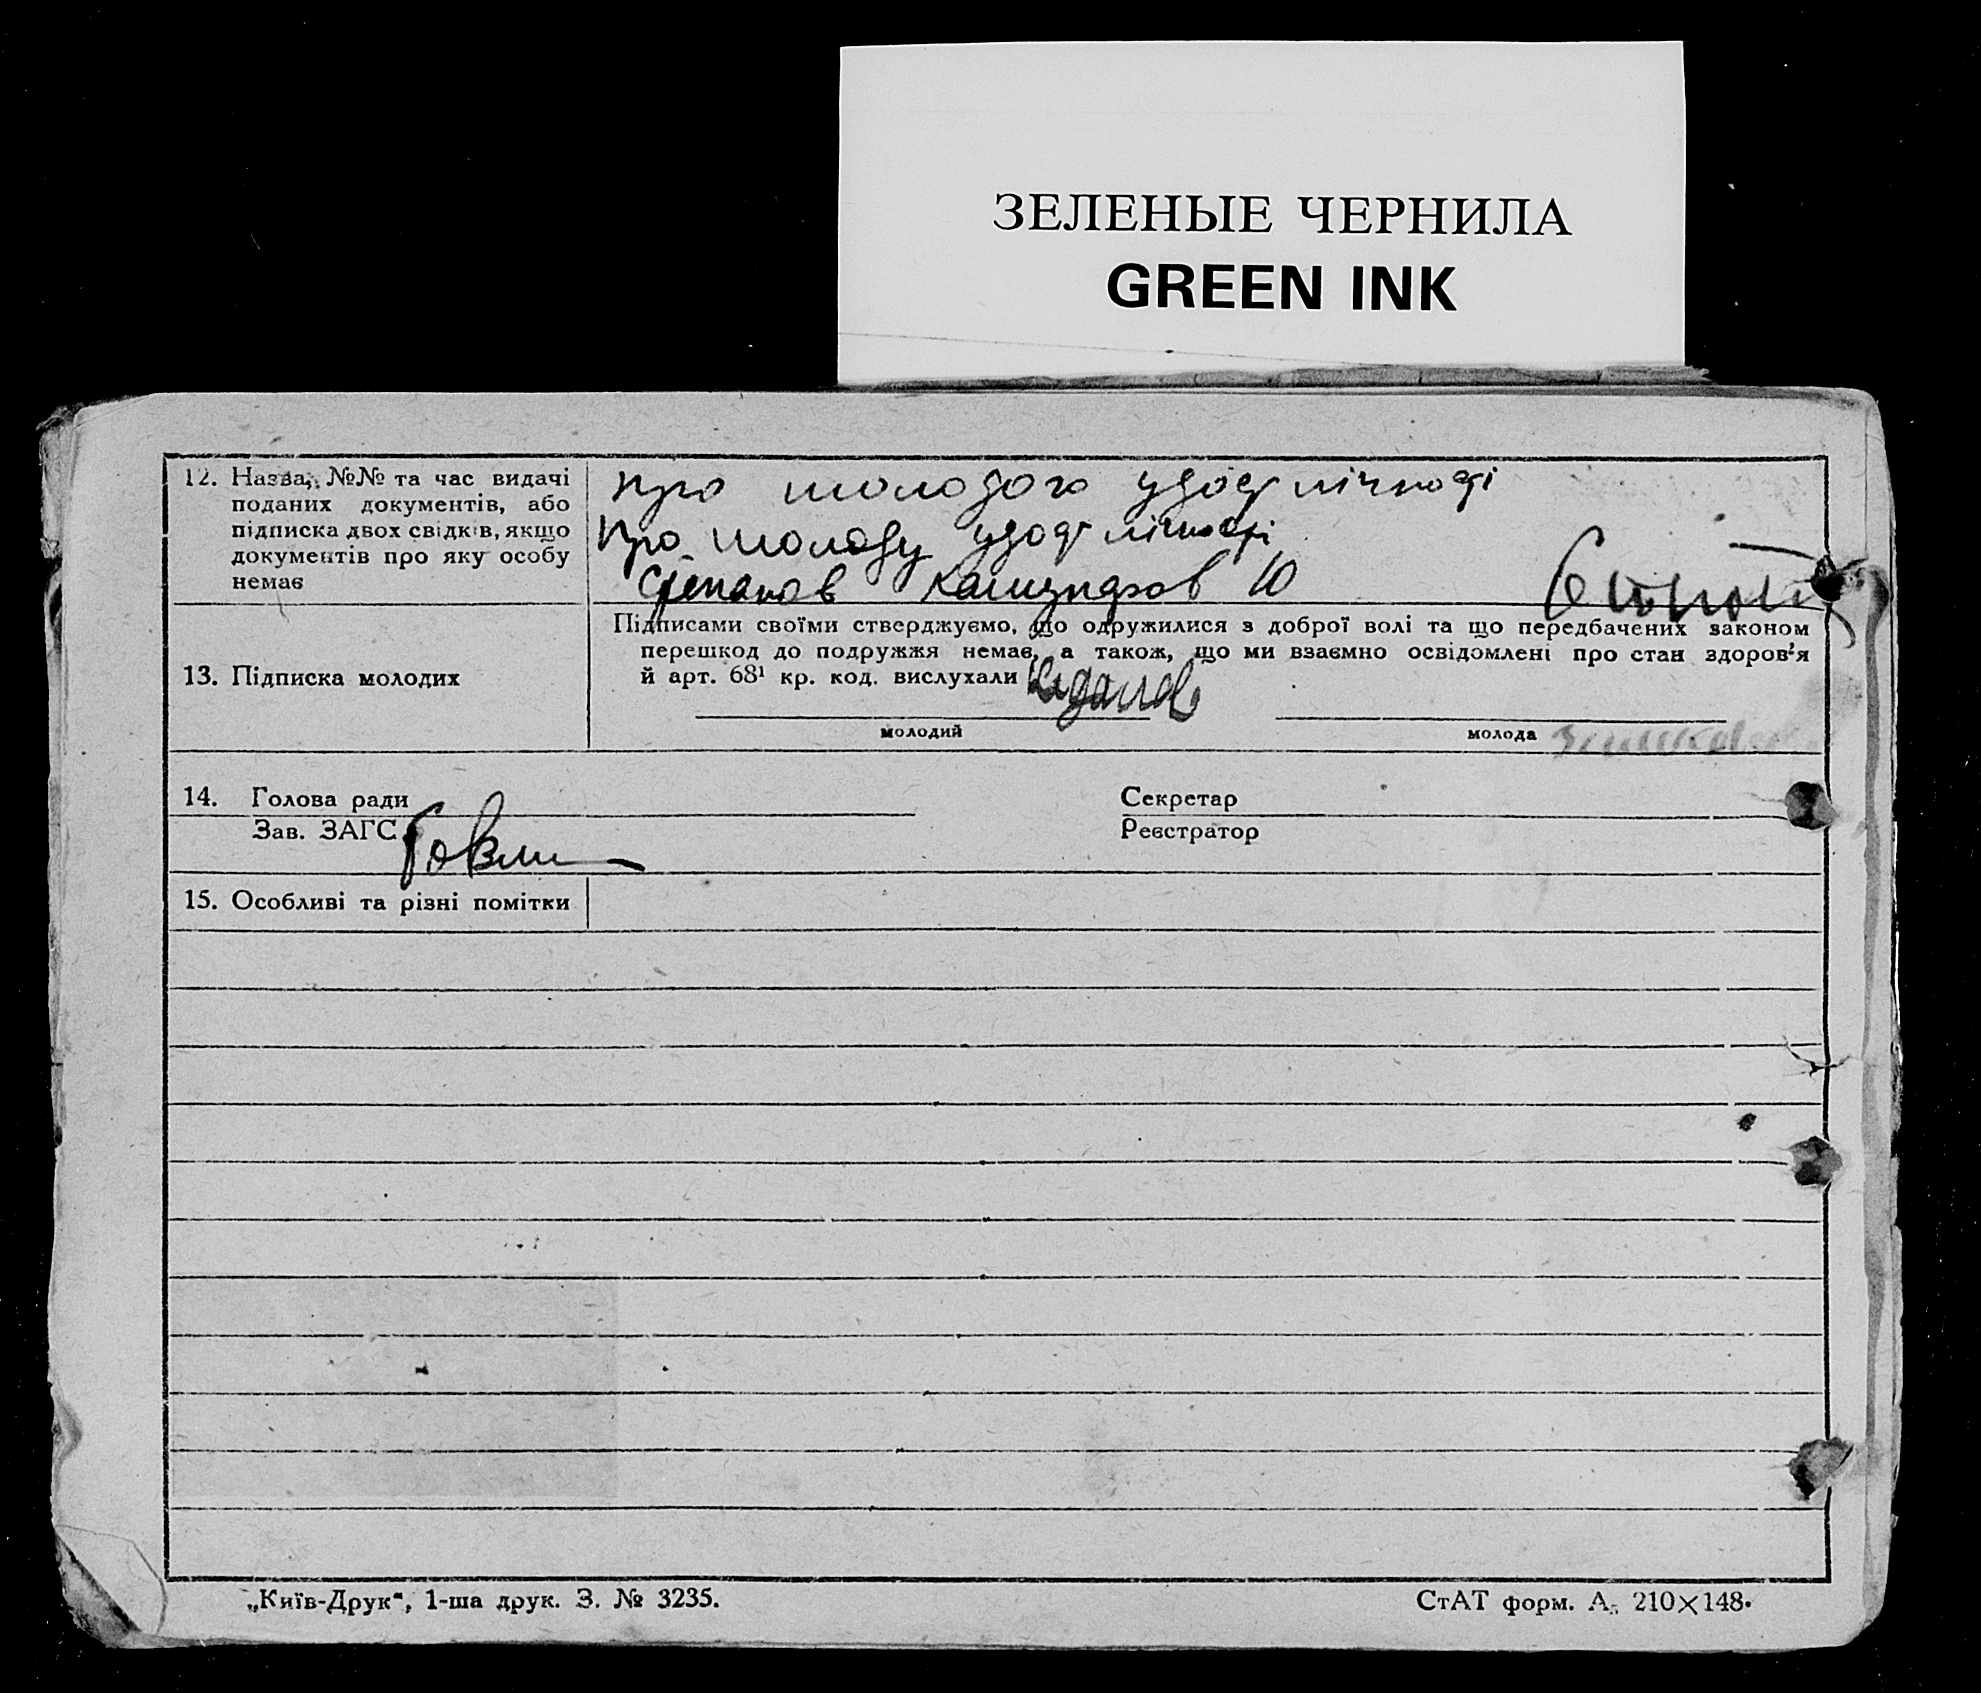 ЗЕЛЕНЫЕ ЧЕРНИЛА
GREEN INK
12. Назва, №№ та час видачі
поданих документів, або
підписка двох свідків, якщо
документів про яку особу
немає
про молодого удост лічності
про молоду удост лічності
Степанов Ю
Підписами своїми стверджуємо, що одружилися з доброї волі та що передбачених законом
перешкод до подружжя немає, а також, що ми взаємно освідомлені про стан здоров'я
й арт. 68¹ кр. код. вислухали
13. Підписка молодих
молодий
молода
14. Голова ради
Секретар
Зав. ЗАГС
Реєстратор
15. Особливі та різні помітки
„Київ-Друк“, 1-ша друк. З. № 3235.
СтАТ форм. А. 210×148.